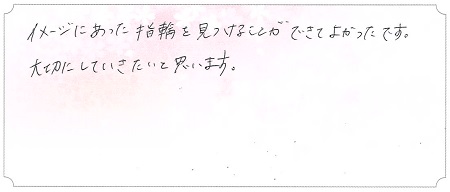 イメージにあった指輪を見つけることができてよかったです。
大切にしていきたいと思います。